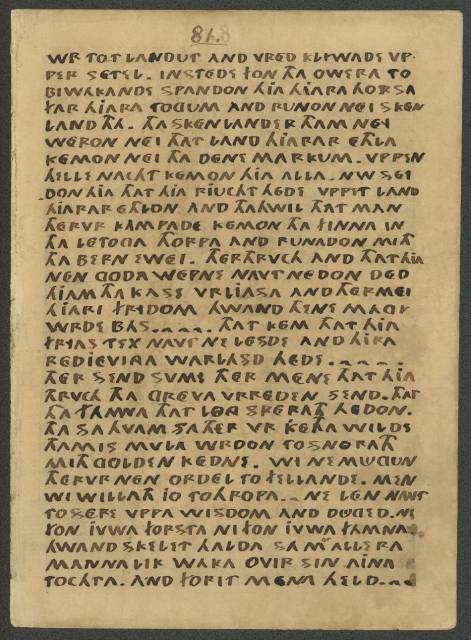 81.
WR TOT LANDUT AND VRED KLIWADE VP-
PER SETEL. INSTEDE FON THA OWERA TO
BIWAKANDE SPANDON HIA HIARA HORSA
FAR HIARA TOGUM AND RUNON NEI SKEN
LAND THA. THA SKENLANDER THAM NEI
WERON NEI THAT LAND HIARAR ETHLA
KEMON NEI THA DENEMARKUM. VPPEN
HELLE NACHT KEMON HIA ALLA. NW SEI
DON HIA THAT HIA RIUCHT HEDE VPPET LAND
HIARAR ETHLON AND THAHWIL THAT MAN
THERVR KAMPADE KEMON THA FINNA IN
THA LETOGA THORPA AND RUNADON MITH
THA BERN EWEI. THERTHRVCH AND THAT HIA
NEN GODA WEPNE NAVT NEDON DED
HIAM THA KASE VRLIASA AND THERMEI
HIARI FRIDOM HWAND THENE MAGI
WRDE BAS.... THAT KEM THAT HIA
FRIAS TEX NAVT NE LESDE AND HIRA
REDIEVIRA WARLASD HEDE.....
THER SEND SVME THER MENE THAT HIA
THRUCH THA GREVA VRREDEN SEND. THAT
THA FAMNA THAT LONG SPERATH HEDON.
THA SA HVAM SA THER VR KETHA WILDE
THAMIS MVLA WRDON TO SNORATH
MITH GOLDEN KEDNE. WI NE MUGUN
THERVR NEN ORDEL TO FELLANDE. MEN
WI WILLATH IO TO HROPA.. NE LEN NAVT
TO SERE VPPA WISDOM AND DUGED. NI
FON IVWA FORSTA NI FON IVWA FAMNA
HWAND SKEL ET HALDA SA MOT ALLERA
MANNALIK WAKA OVIR SIN AINA
TOCHTA. AND FORIT MENA HELD....